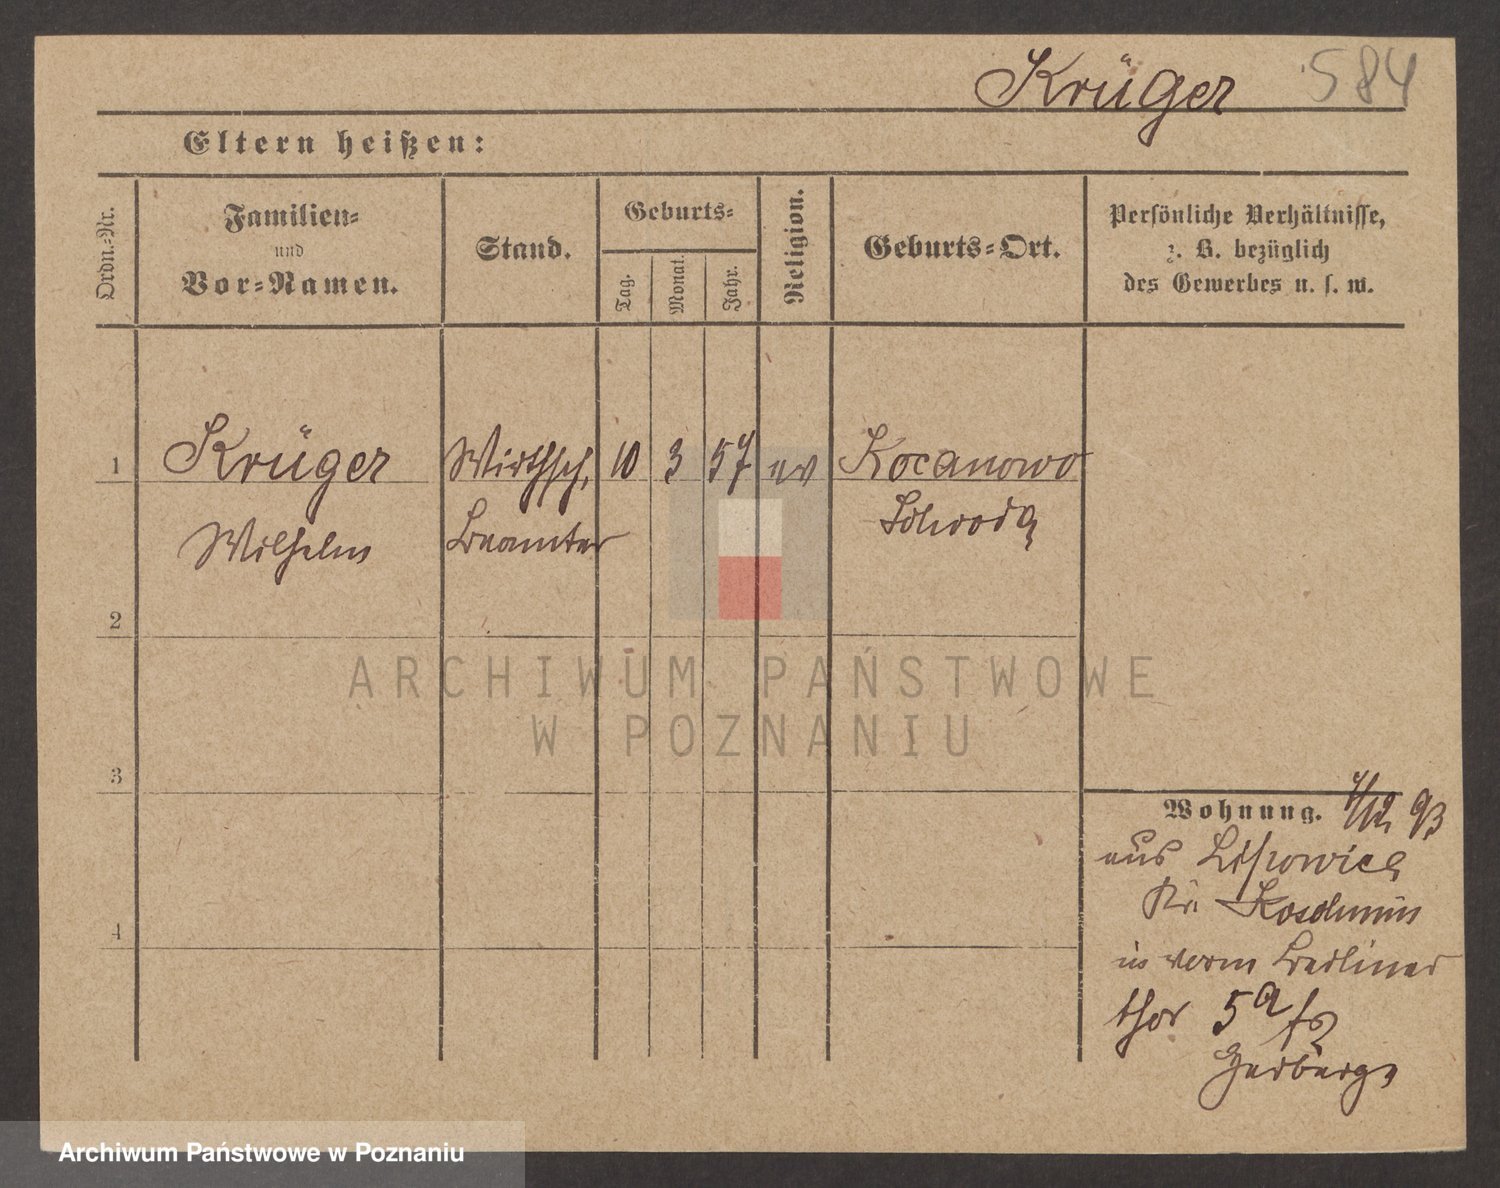 Krüger 584
Eltern heißen:
Ordn.-Nr.
Familien-
und
Vor-Namen.
Stand.
Geburts-
Tag.
Monat.
Jahr.
Religion.
Geburts-Ort.
Persönliche Verhältnisse,
z. B. bezüglich
des Gewerbes u. s. w.
1 Krüger Wirthsch. 10 3 57 ev Kocanowo
Wilhelm Beamter Schroda
2
3
4
Wohnung. 4/12 93
aus
Kr. Koschmin
in vorm Berliner
thor 5a
Herberge
ARCHIWUM PAŃSTWOWE
W POZNANIU
Archiwum Państwowe w Poznaniu